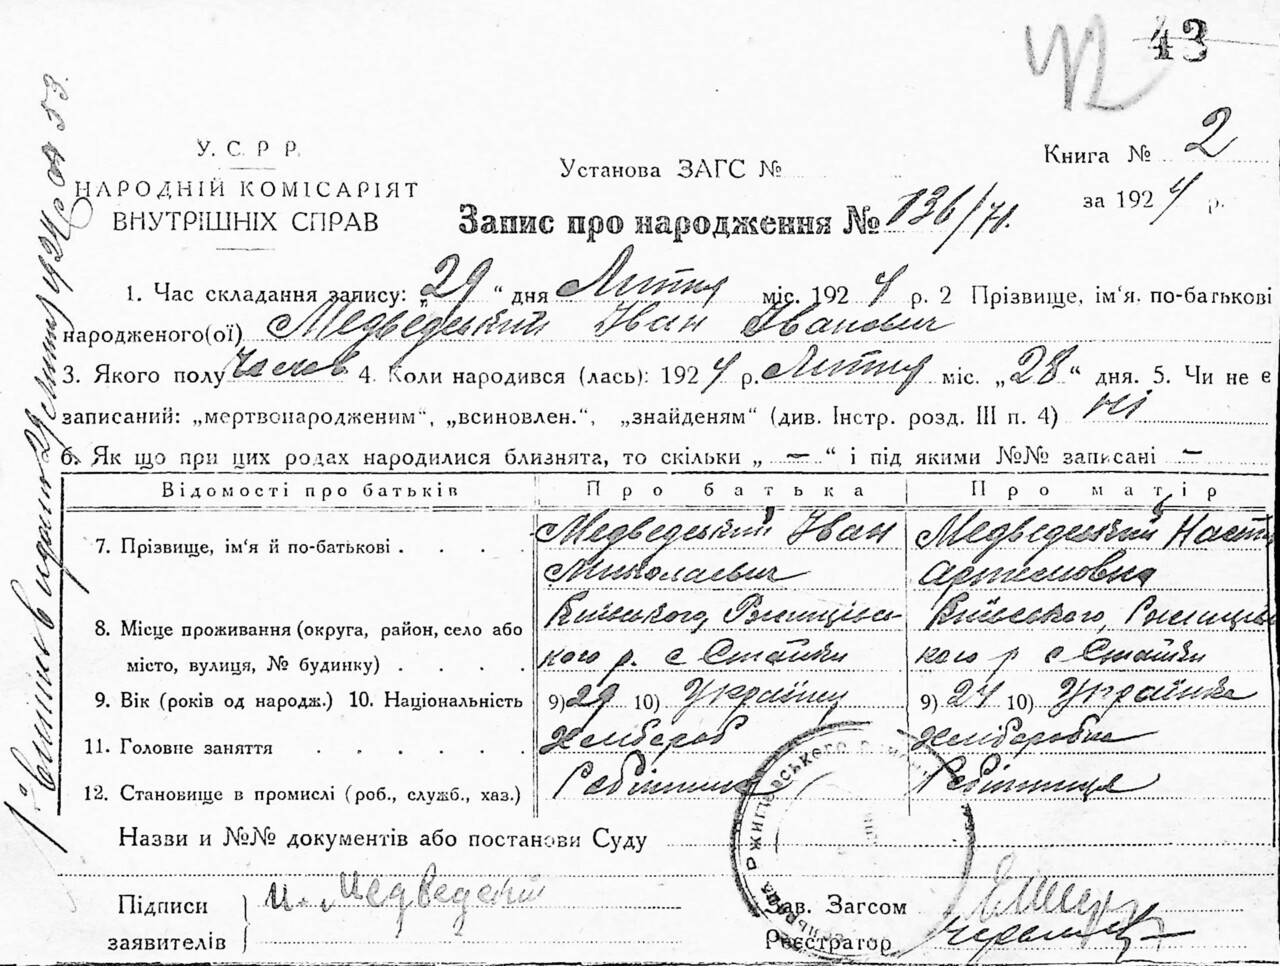 43
42
У. С. Р Р.
НАРОДНІЙ КОМІСАРІЯТ
ВНУТРІШНІХ СПРАВ
Установа ЗАГС №
Книга № 2
за 1924 р.
Запис про народження № 136/71.
1. Час складання запису: „29“ дня Лютня міс. 1924 р. 2 Прізвище, ім'я. по-батькові
народженого(ої) Медведський Іван Іванович
3. Якого полу Чолов 4. Коли народився (лась): 1924 р. Лютня міс. „28“ дня. 5. Чи не є
записаний: „мертвонародженим“, „всиновлен.“, „знайденям“ (див. Інстр. розд. III п. 4) ні
6. Як що при цих родах народилися близнята, то скільки „ — “ і під якими №№ записані —
Відомості про батьків Про батька Про матір
7. Прізвище, ім'я й по-батькові . . . . Медведський Іван Медведський Настя
Миколаевич Артемовна
8. Місце проживання (округа, район, село або Київського, Ржищівсь- Київського, Ржищівсь
місто, вулиця, № будинку) . . . . кого р. с Стайки кого р с Стайки
9. Вік (років од народж.) 10. Національність 9) 29 10) Українц 9) 24 10) Українка
11. Головне заняття . . . . . . Хлібороб Хліборобка
12. Становище в промислі (роб., служб., хаз.) Робітник Робітниця
Назви и №№ документів або постанови Суду
Підписи
заявителів
И. Медведский
Зав. Загсом
Реєстратор
Ржищівського району